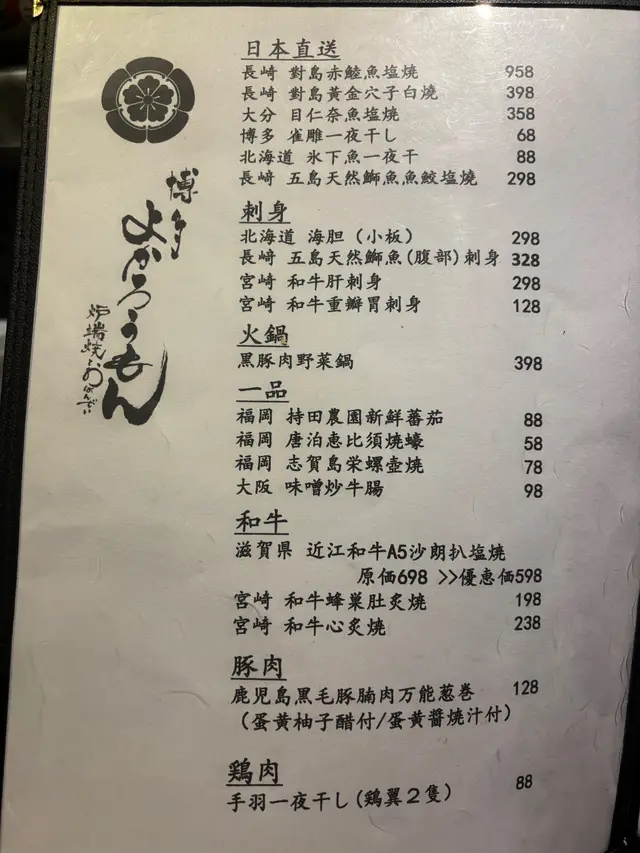 博多
よかろうもん
炉端焼とおばんざい
日本直送
長崎 對島赤鯥魚塩燒 958
長崎 對島黃金穴子白燒 398
大分 目仁奈魚塩燒 358
博多 雀雕一夜干し 68
北海道 氷下魚一夜干 88
長崎 五島天然鰤魚魚鮫塩燒 298
刺身
北海道 海胆 (小板) 298
長崎 五島天然鰤魚(腹部)刺身 328
宮崎 和牛肝刺身 298
宮崎 和牛重瓣胃刺身 128
火鍋
黒豚肉野菜鍋 398
一品
福岡 持田農園新鮮蕃茄 88
福岡 唐泊恵比須燒蠔 58
福岡 志賀島栄螺壺燒 78
大阪 味噌炒牛腸 98
和牛
滋賀県 近江和牛A5沙朗扒塩燒
原価698 >>優惠価598
宮崎 和牛蜂巢肚炙燒 198
宮崎 和牛心炙燒 238
豚肉
鹿児島黒毛豚腩肉万能葱巻 128
(蛋黄柚子醋付/蛋黄醬燒汁付)
鶏肉
手羽一夜干し(鶏翼2隻) 88